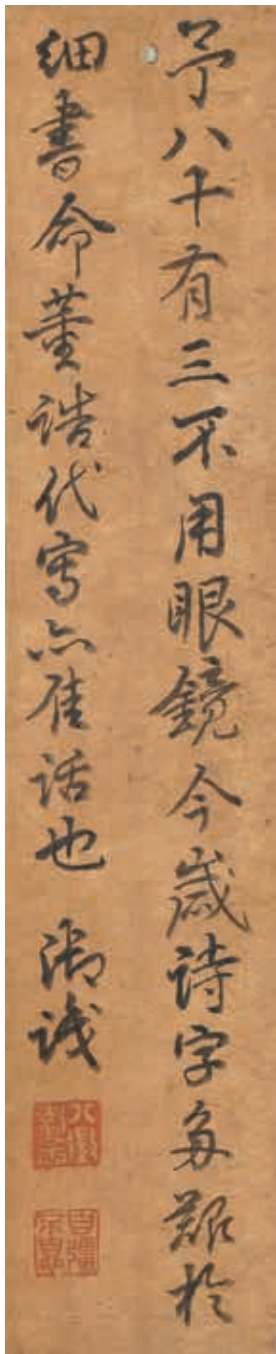 予八十有三不用眼鏡今歲詩字多艱於
細書命董誥代寫亦佳話也 御識
八徵耄念
自彊不息